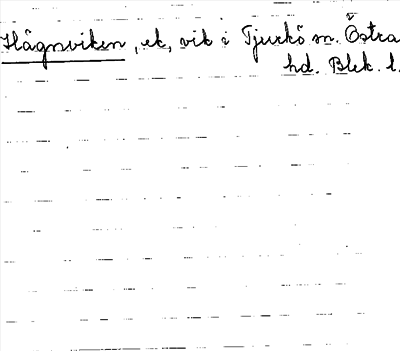 Hågnviken, ek, vik i Tjurkö sn. Östra
hd. Blek. l.